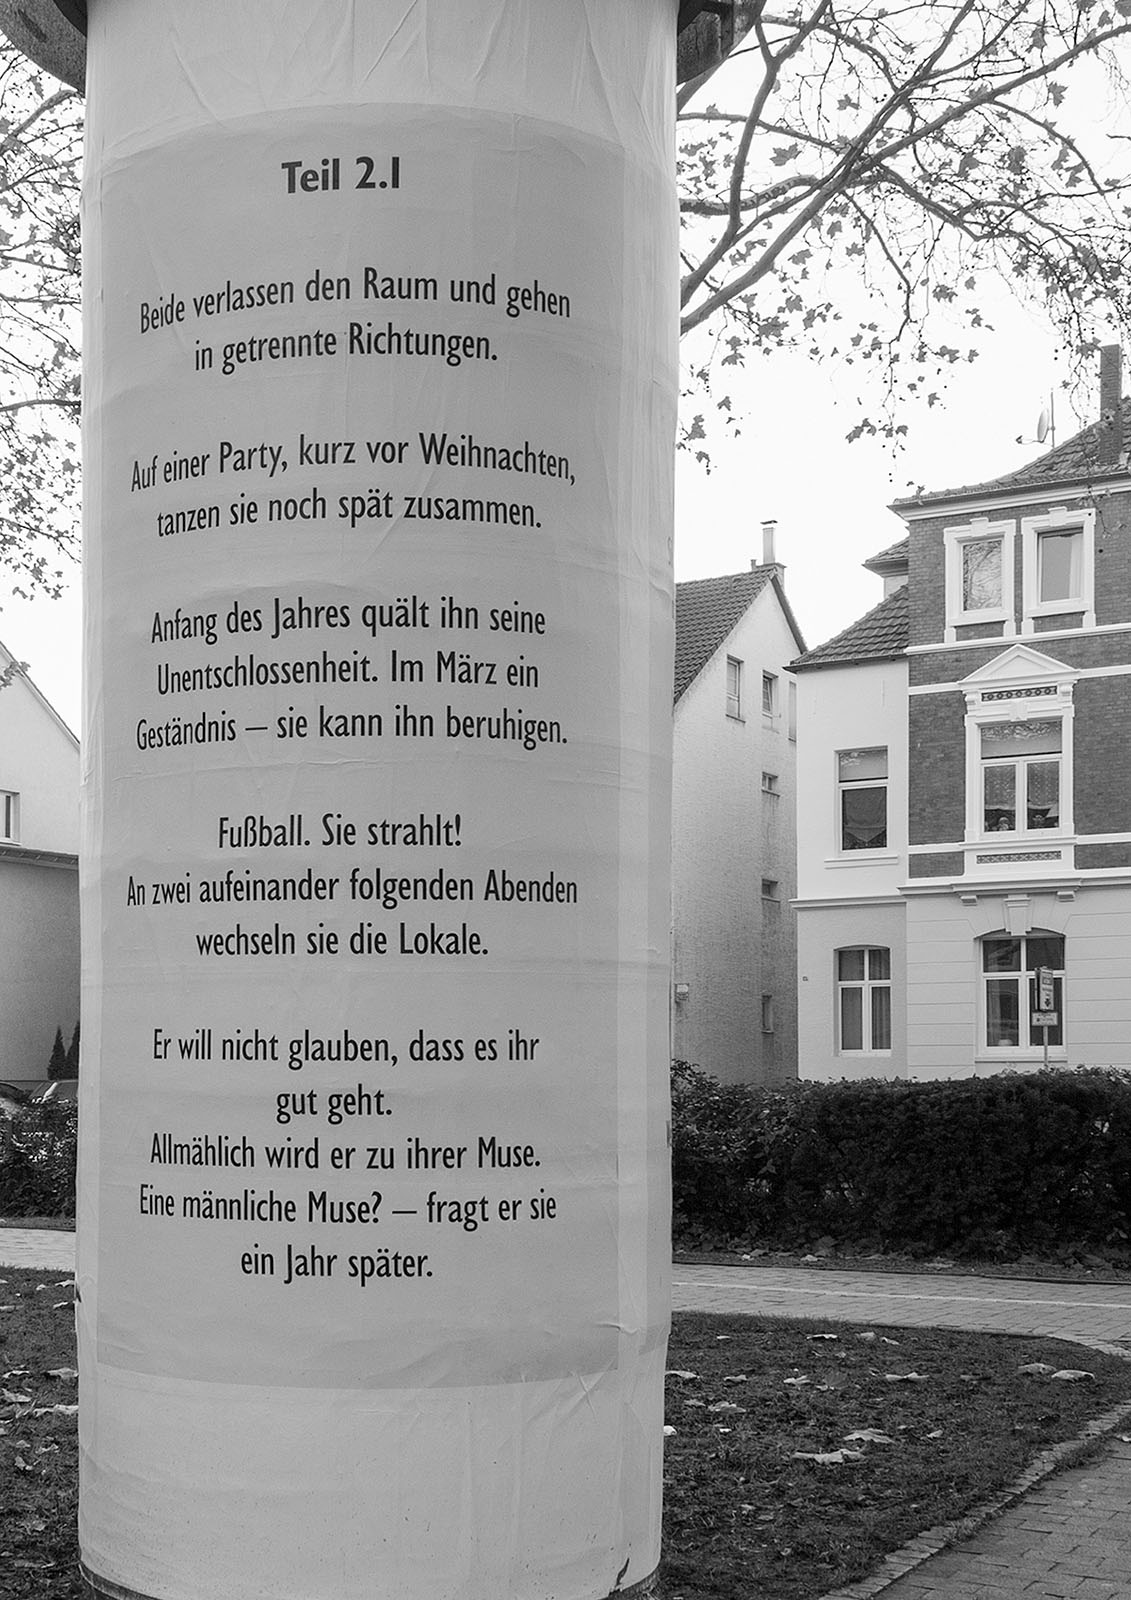 Teil 2.1
Beide verlassen den Raum und gehen
in getrennte Richtungen.
Auf einer Party, kurz vor Weihnachten,
tanzen sie noch spät zusammen.
Anfang des Jahres quält ihn seine
Unentschlossenheit. Im März ein
Geständnis – sie kann ihn beruhigen.
Fußball. Sie strahlt!
An zwei aufeinander folgenden Abenden
wechseln sie die Lokale.
Er will nicht glauben, dass es ihr
gut geht.
Allmählich wird er zu ihrer Muse.
Eine männliche Muse? – fragt er sie
ein Jahr später.